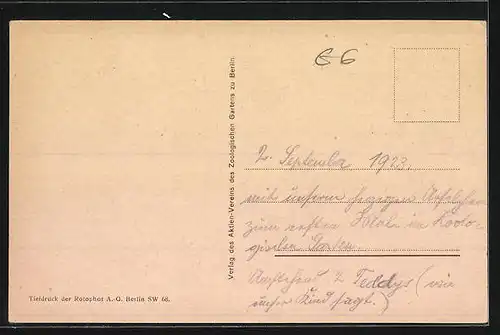 € 6
Verlag des Aktien-Vereins des Zoologischen Gartens zu Berlin
2. September 1923.
mit unserm
zum ersten Male im Zoolo-
gischen Garten.
2 Teddys (wie
unser Kind sagt.)
Tiefdruck der Rotophot A.-G. Berlin SW 68.